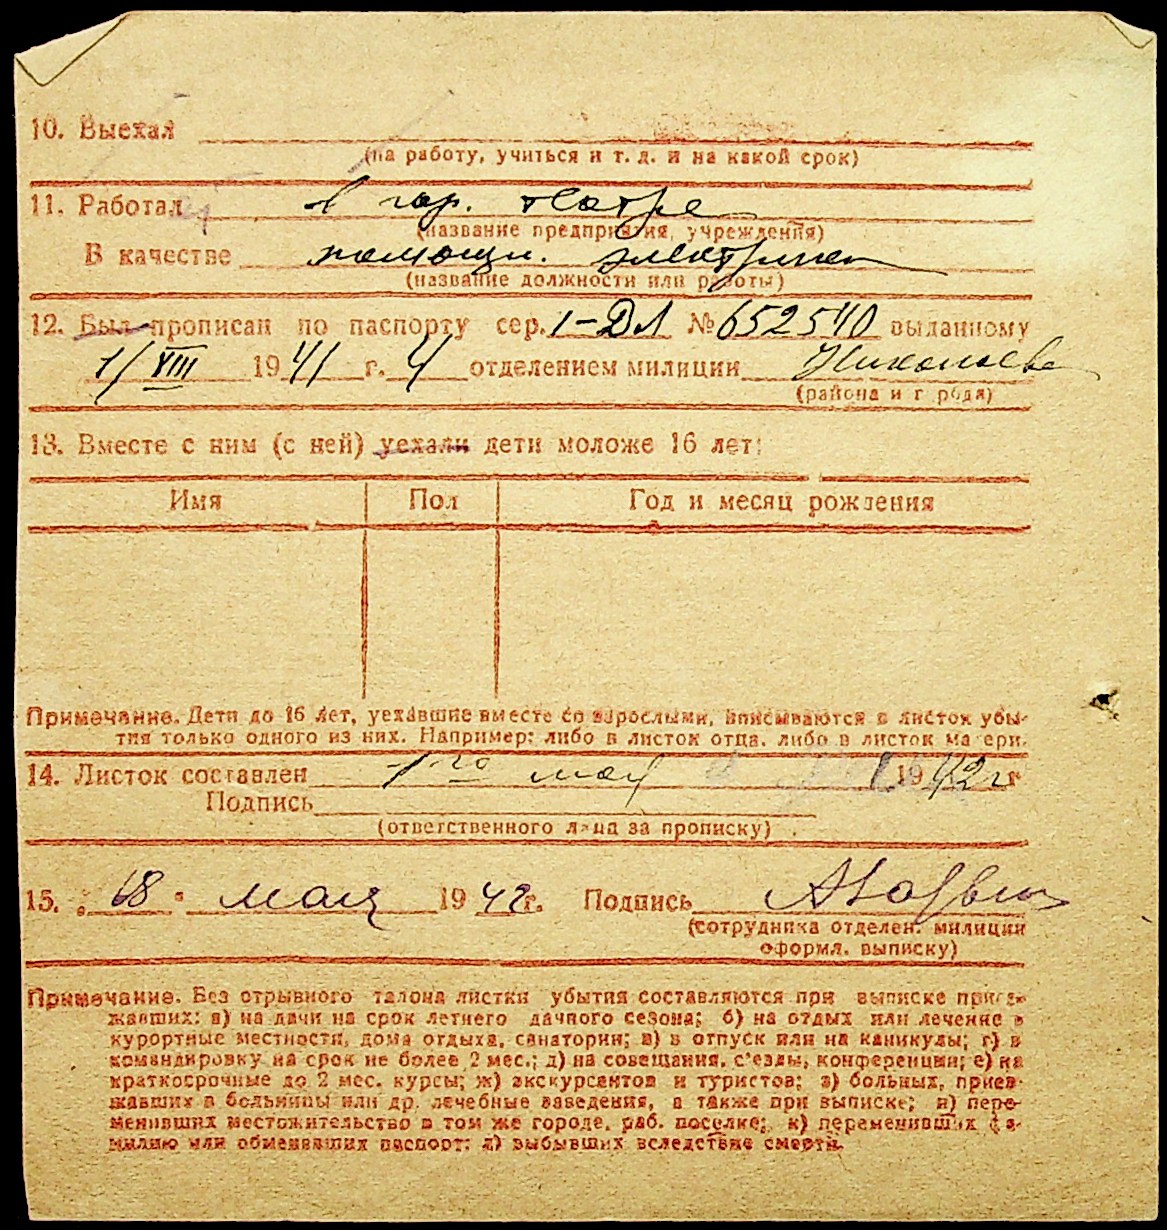 10. Выехал
(на работу, учиться и т. д. и на какой срок)
11. Работал в гор. театре
(название предприятия, учреждения)
В качестве помощн. электрика
(название должности или работы)
12. Был прописан по паспорту сер. I-ДЛ № 652540 выданному
1/VIII 1941 г. 4 отделением милиции Николаева
(района и города)
13. Вместе с ним (с ней) уехали дети моложе 16 лет:
Имя Пол Год и месяц рождения
Примечание. Дети до 16 лет, уехавшие вместе со взрослыми, вписываются в листок убы-
тия только одного из них. Например: либо в листок отца, либо в листок матери.
14. Листок составлен 1го мая 1942 г
Подпись
(ответственного лица за прописку)
15. "18" мая 1942 г. Подпись
(сотрудника отделен. милиции
оформл. выписку)
Примечание. Без отрывного талона листки убытия составляются при выписке прие-
жавших: а) на дачи на срок летнего дачного сезона; б) на отдых или лечение в
курортные местности, дома отдыха, санатории; в) в отпуск или на каникулы; г) в
командировку на срок не более 2 мес.; д) на совещания, с'езды, конференции; е) на
краткосрочные до 2 мес. курсы; ж) экскурсантов и туристов; з) больных, приез-
жавших в больницы или др. лечебные заведения, а также при выписке; и) пере-
менивших местожительство в том же городе, раб. поселке; к) переменивших фа-
милию или обменявших паспорт; л) выбывших вследствие смерти.